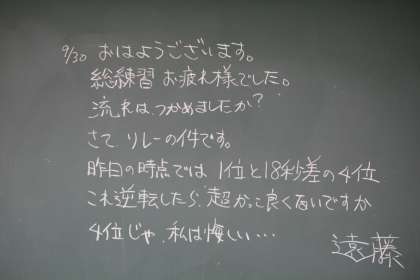 9/30 おはようございます。
総練習お疲れ様でした。
流れは、つかめましたか?
さて、リレーの件です。
昨日の時点では1位と18秒差の4位
これ逆転したら、超かっこ良くないですか
4位じゃ、私は悔しい…
遠藤